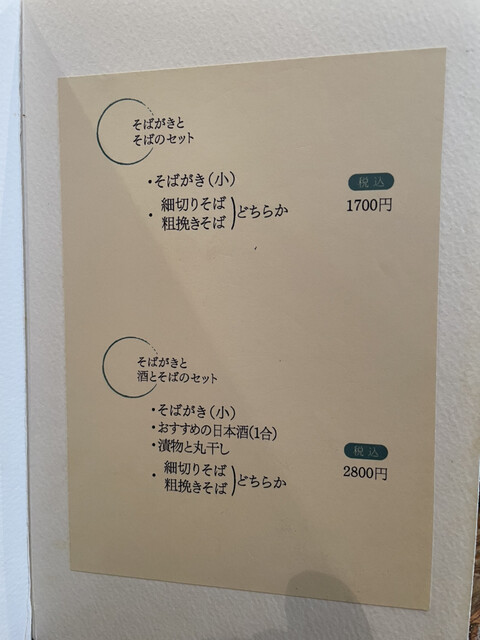 そばがきと
そばのセット
・そばがき（小）
税込
・細切りそば
粗挽きそば
)どちらか
1700円
そばがきと
酒とそばのセット
・そばがき（小）
・おすすめの日本酒(1合)
・漬物と丸干し
税込
・細切りそば
粗挽きそば
)どちらか
2800円